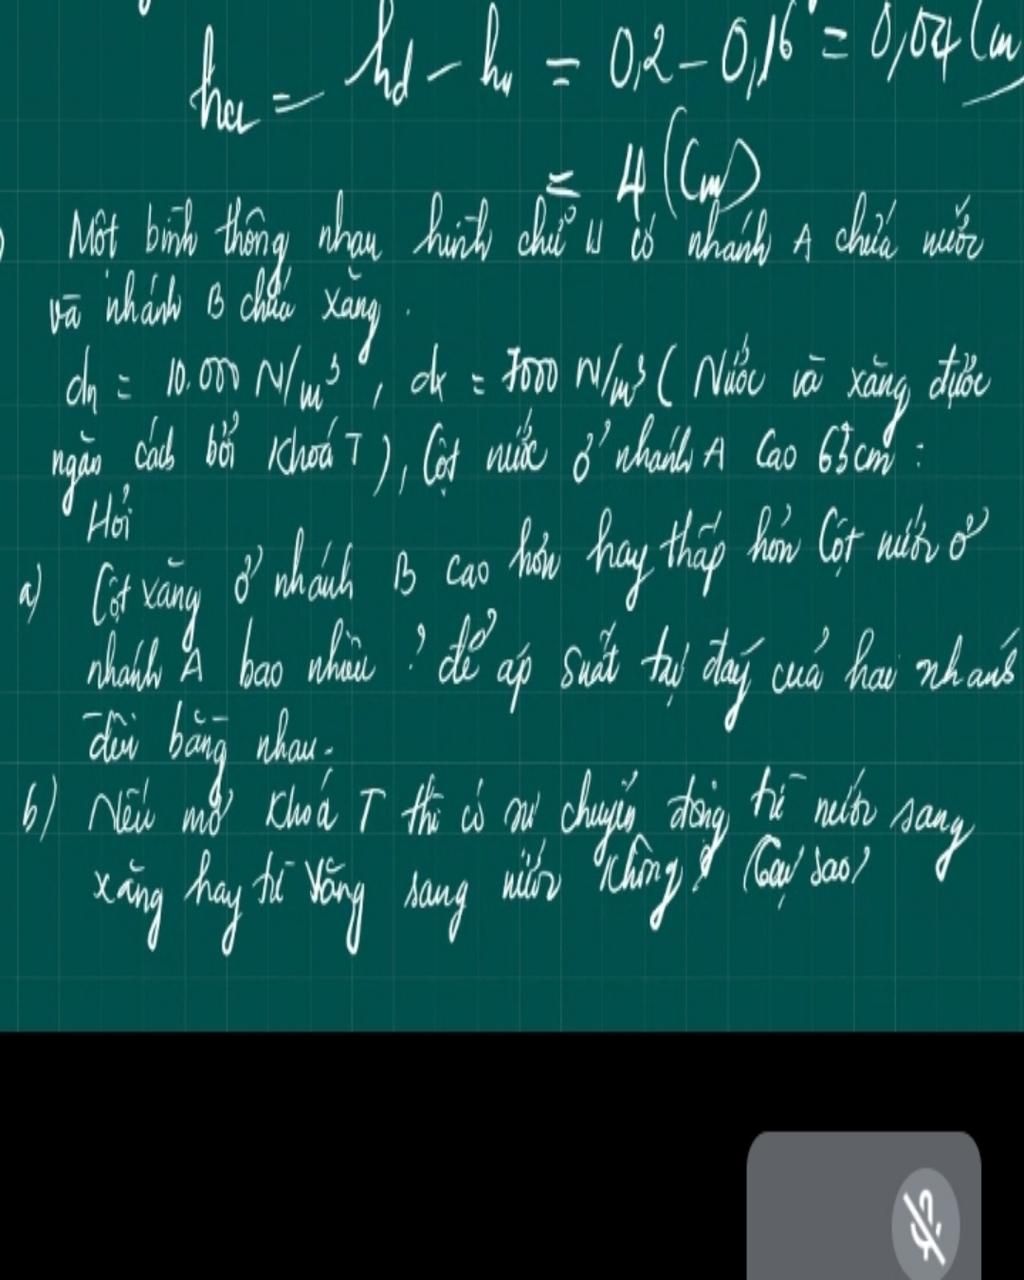 hcl = hd - hn = 0,2 - 0,16 = 0,04 (m
= 4 (cm)
) Một bình thông nhau hình chữ U có nhánh A chứa nước
và nhánh B chứa xăng.
dn = 10.000 N/m³, dx = 7000 N/m³ ( Nước và xăng được
ngăn cách bởi khoá T), Cột nước ở nhánh A cao 63cm:
Hỏi
a) Cột xăng ở nhánh B cao hơn hay thấp hơn Cột nước ở
nhánh A bao nhiêu? để áp suất tại đáy của hai nhánh
đều bằng nhau.
b) Nếu mở khoá T thì có sự chuyển động từ nước sang
xăng hay từ xăng sang nước không? (Tại sao)